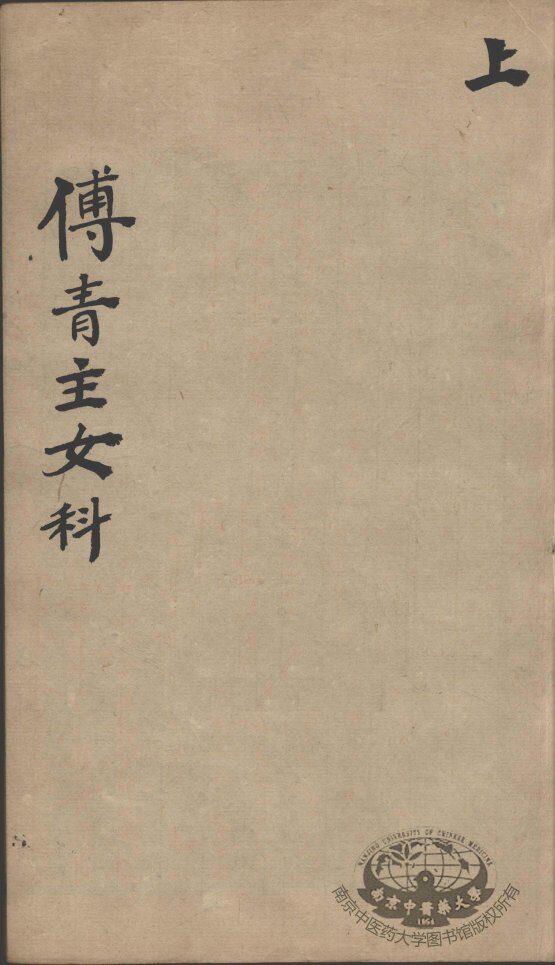 上
傅青主女科
NANJING UNIVERSITY OF CHINESE MEDICINE
南京中醫藥大學
1954
南京中医药大学图书馆版权所有